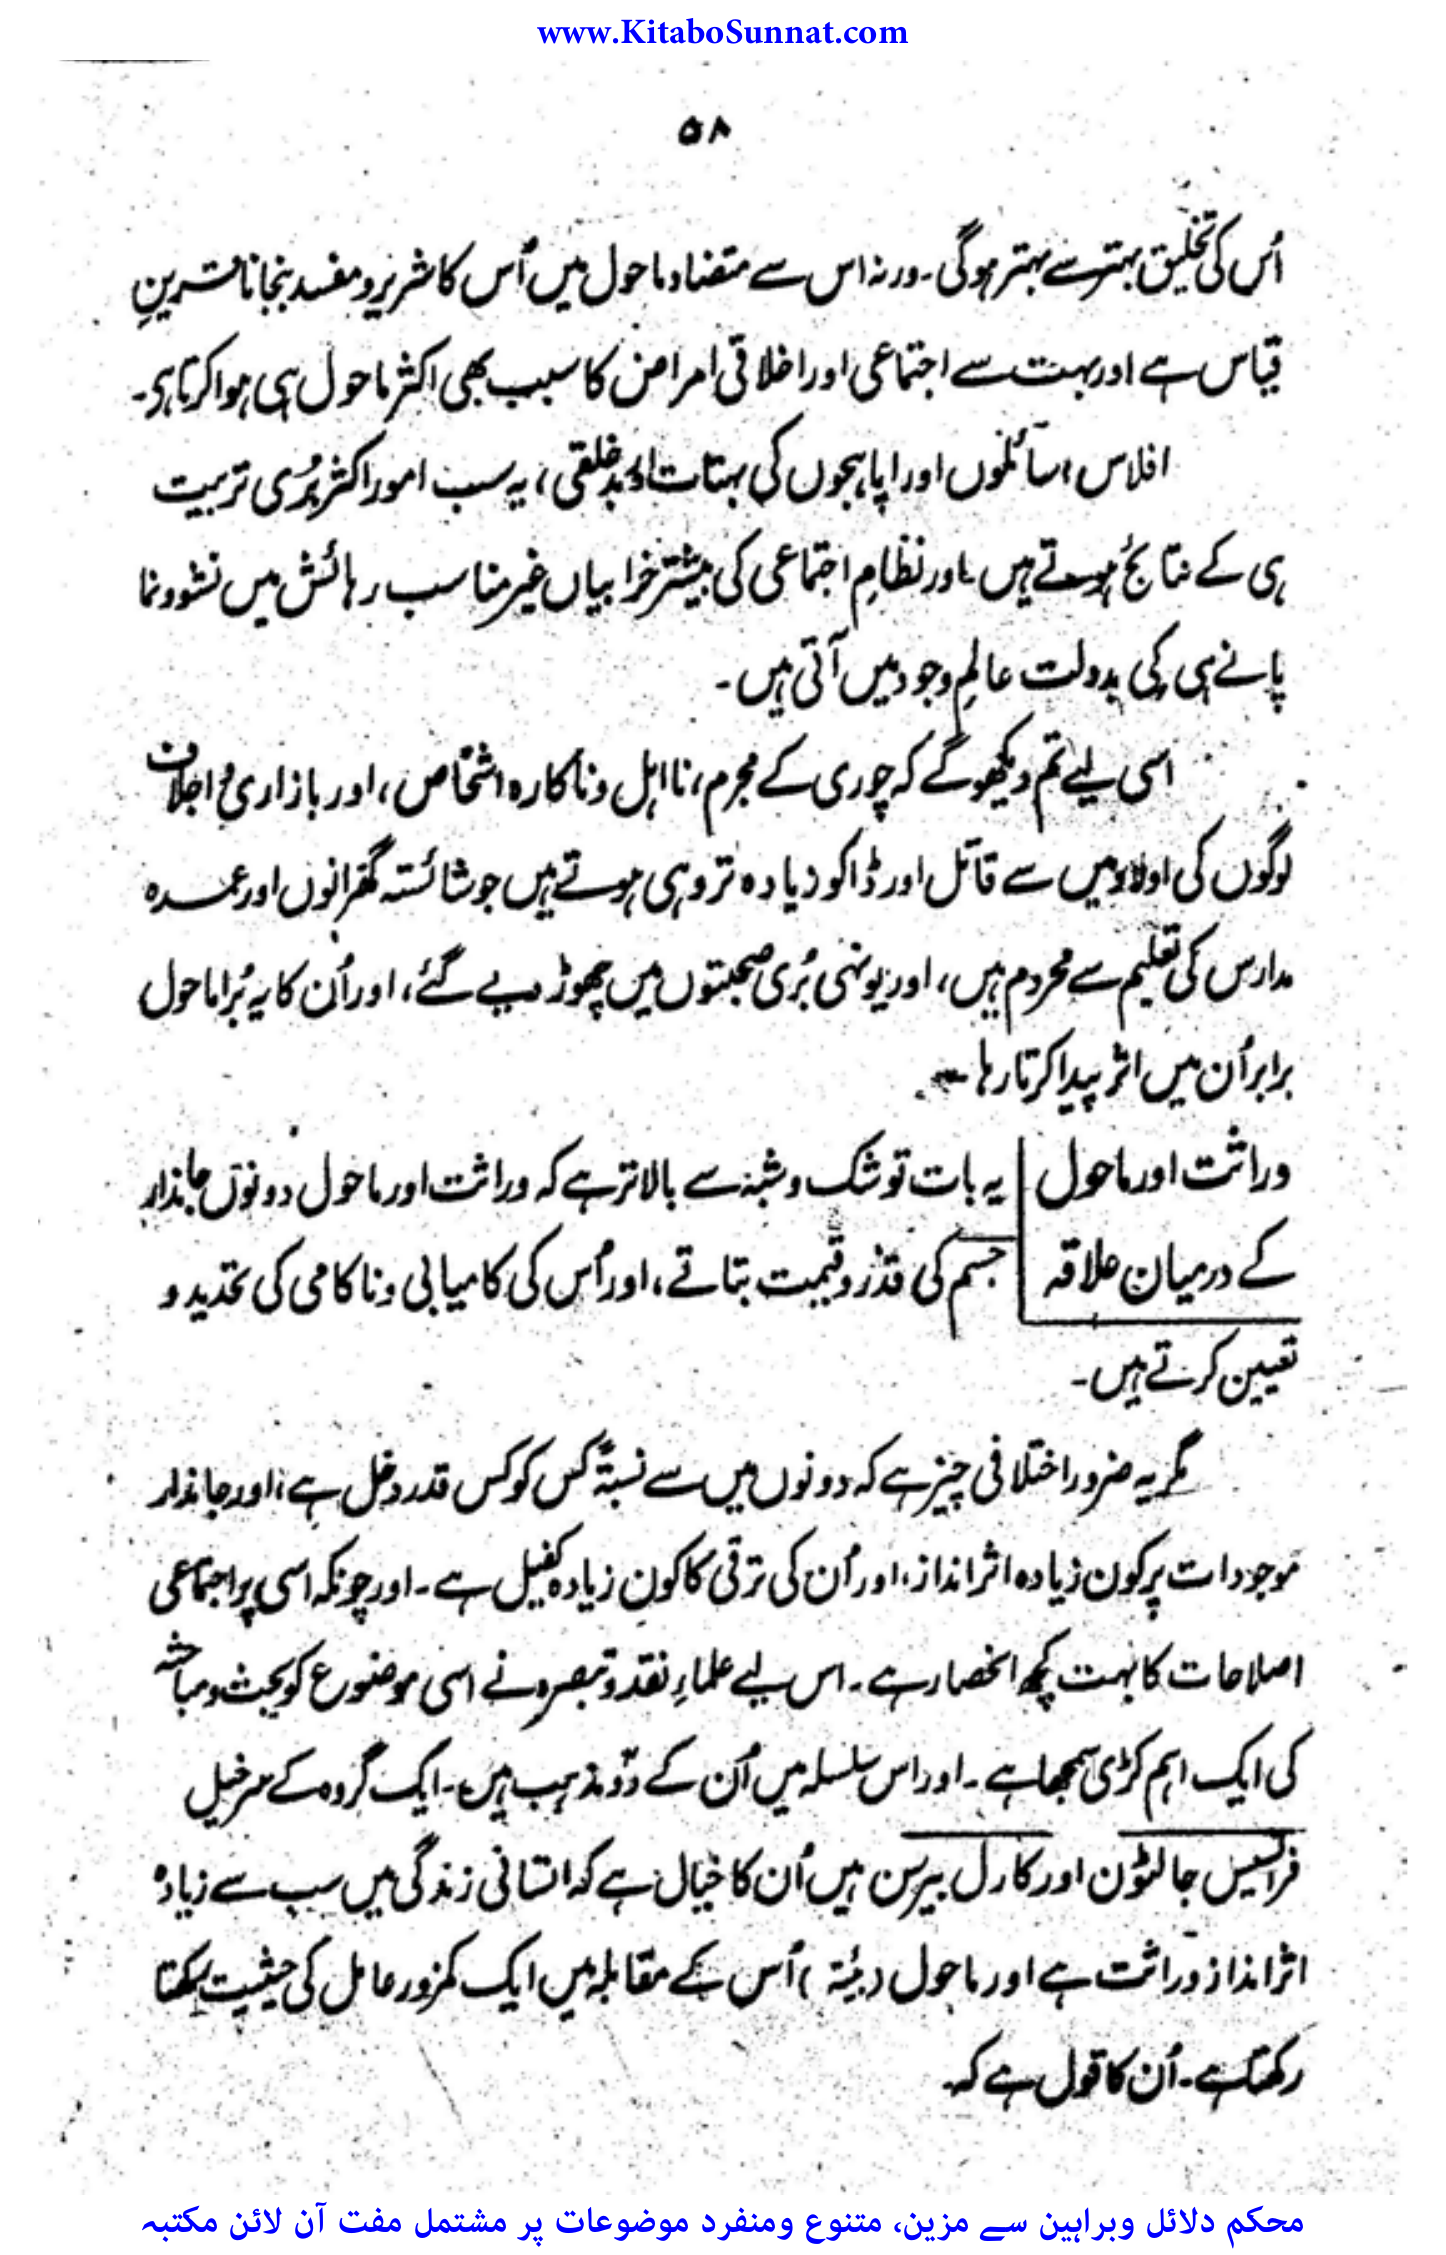 www.KitaboSunnat.com
۵۸
اُس کی تخلیق بہتر سے بہتر ہوگی۔ ورنہ اس سے متضاد ماحول میں اُس کا شریر و مفسد بنجانا قرینِ
قیاس ہے اور بہت سے اجتماعی اور اخلاقی امراض کا سبب بھی اکثر ماحول ہی ہوا کرتا ہی۔
افلاس، سائلوں اور اپاہجوں کی بہتات اور بدخلقی، یہ سب امور اکثر بُری تربیت
ہی کے نتائج ہوتے ہیں۔ اور نظامِ اجتماعی کی بیشتر خرابیاں غیر مناسب رہائش میں نشوونما
پانے ہی کی بدولت عالمِ وجود میں آتی ہیں۔
اسی لیے تم دیکھو گے کہ چوری کے مجرم، نااہل و ناکارہ اشخاص، اور بازاری و اجلاف
لوگوں کی اولاد میں سے قاتل اور ڈاکو زیادہ تر وہی ہوتے ہیں جو شائستہ گھرانوں اور عمدہ
مدارس کی تعلیم سے محروم ہیں، اور یونہی بُری صحبتوں میں چھوڑ دیے گئے، اور اُن کا یہ بُرا ماحول
برابر اُن میں اثر پیدا کرتا رہا۔
وراثت اور ماحول یہ بات تو شک و شبہ سے بالاتر ہے کہ وراثت اور ماحول دونوں جاندار
کے درمیان علاقہ جسم کی قدر و قیمت بتاتے، اور اُس کی کامیابی و ناکامی کی تحدید و
تعیین کرتے ہیں۔
مگر یہ ضرور اختلافی چیز ہے کہ دونوں میں سے نسبتہً کس کو کس قدر دخل ہے، اور جاندار
موجودات پر کون زیادہ اثر انداز، اور اُن کی ترقی کا کون زیادہ کفیل ہے۔ اور چونکہ اسی پر اجتماعی
اصلاحات کا بہت کچھ انحصار ہے۔ اس لیے علماءِ نقد و تبصرہ نے اسی موضوع کو بحث و مباحثہ
کی ایک اہم کڑی سمجھا ہے۔ اور اس سلسلہ میں اُن کے دو مذہب ہیں۔ ایک گروہ کے سرخیل
فرانسیس جالٹون اور کارل بیرسن ہیں اُن کا خیال ہے کہ انسانی زندگی میں سب سے زیادہ
اثر انداز وراثت ہے اور ماحول (بئیۃ) اُس کے مقابلہ میں ایک کمزور عامل کی حیثیت رکھتا
رکھتا ہے۔ اُن کا قول ہے کہ
محکم دلائل وبراہین سے مزین، متنوع ومنفرد موضوعات پر مشتمل مفت آن لائن مکتبہ